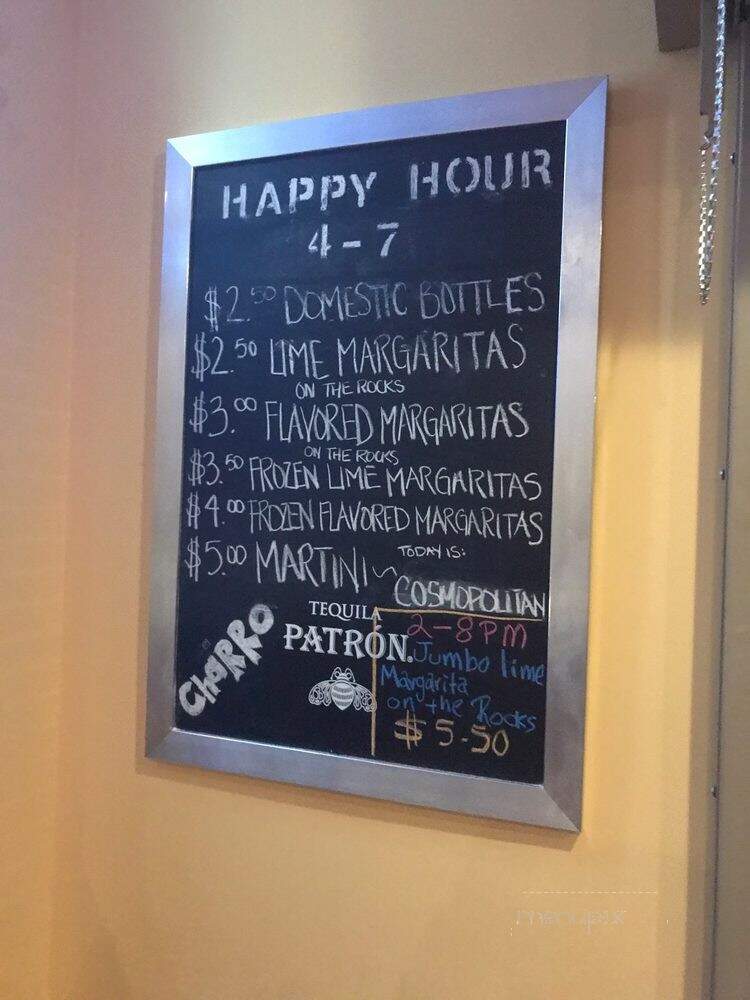 HAPPY HOUR
4-7
$2.50 DOMESTIC BOTTLES
$2.50 LIME MARGARITAS
ON THE ROCKS
$3.00 FLAVORED MARGARITAS
ON THE ROCKS
$3.50 FROZEN LIME MARGARITAS
$4.00 FROZEN FLAVORED MARGARITAS
$5.00 MARTINI~ TODAY IS:
COSMOPOLITAN
CHARRO
TEQUILA
PATRÓN.
2-8PM
Jumbo lime
Margarita
on the Rocks
$5-50
menupix